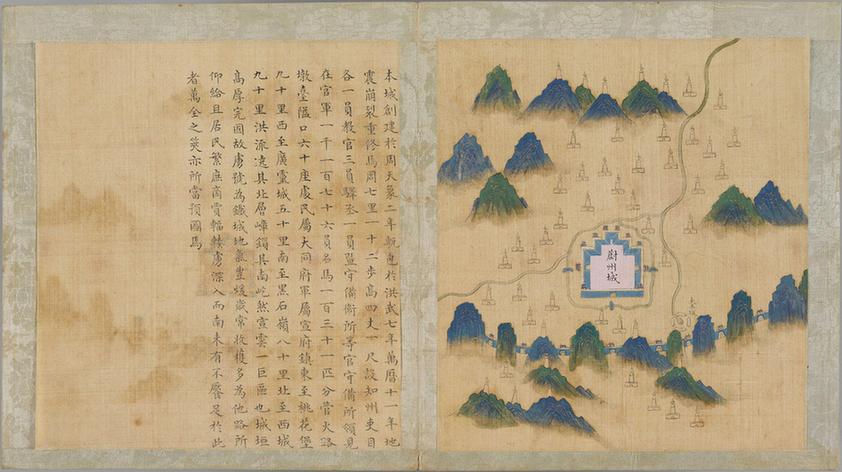 本城創建於周大象二年甎甃於洪武七年萬曆十一年地
震崩裂重修焉周七里一十二步高四丈一尺設知州吏目
各一員教官三員驛丞一員監守備衛所等官守備所領見
在官軍一千一百七十六員名馬一百三十一匹分管火路
墩臺隘口六十座處民屬大同府軍屬宣府鎮東至桃花堡
九十里西至廣靈城五十里南至黑石嶺八十里北至西城
九十里洪流遶其北層嶂鎖其南屹然宣雲一巨區也城垣
高厚完固故虜號為鐵城地氣豐煖歲常收穫多為他路所
仰給且居民繁庶商賈輻輳虜深入而南未有不饜足於此
者萬全之筴亦所當預圖焉
蔚州城